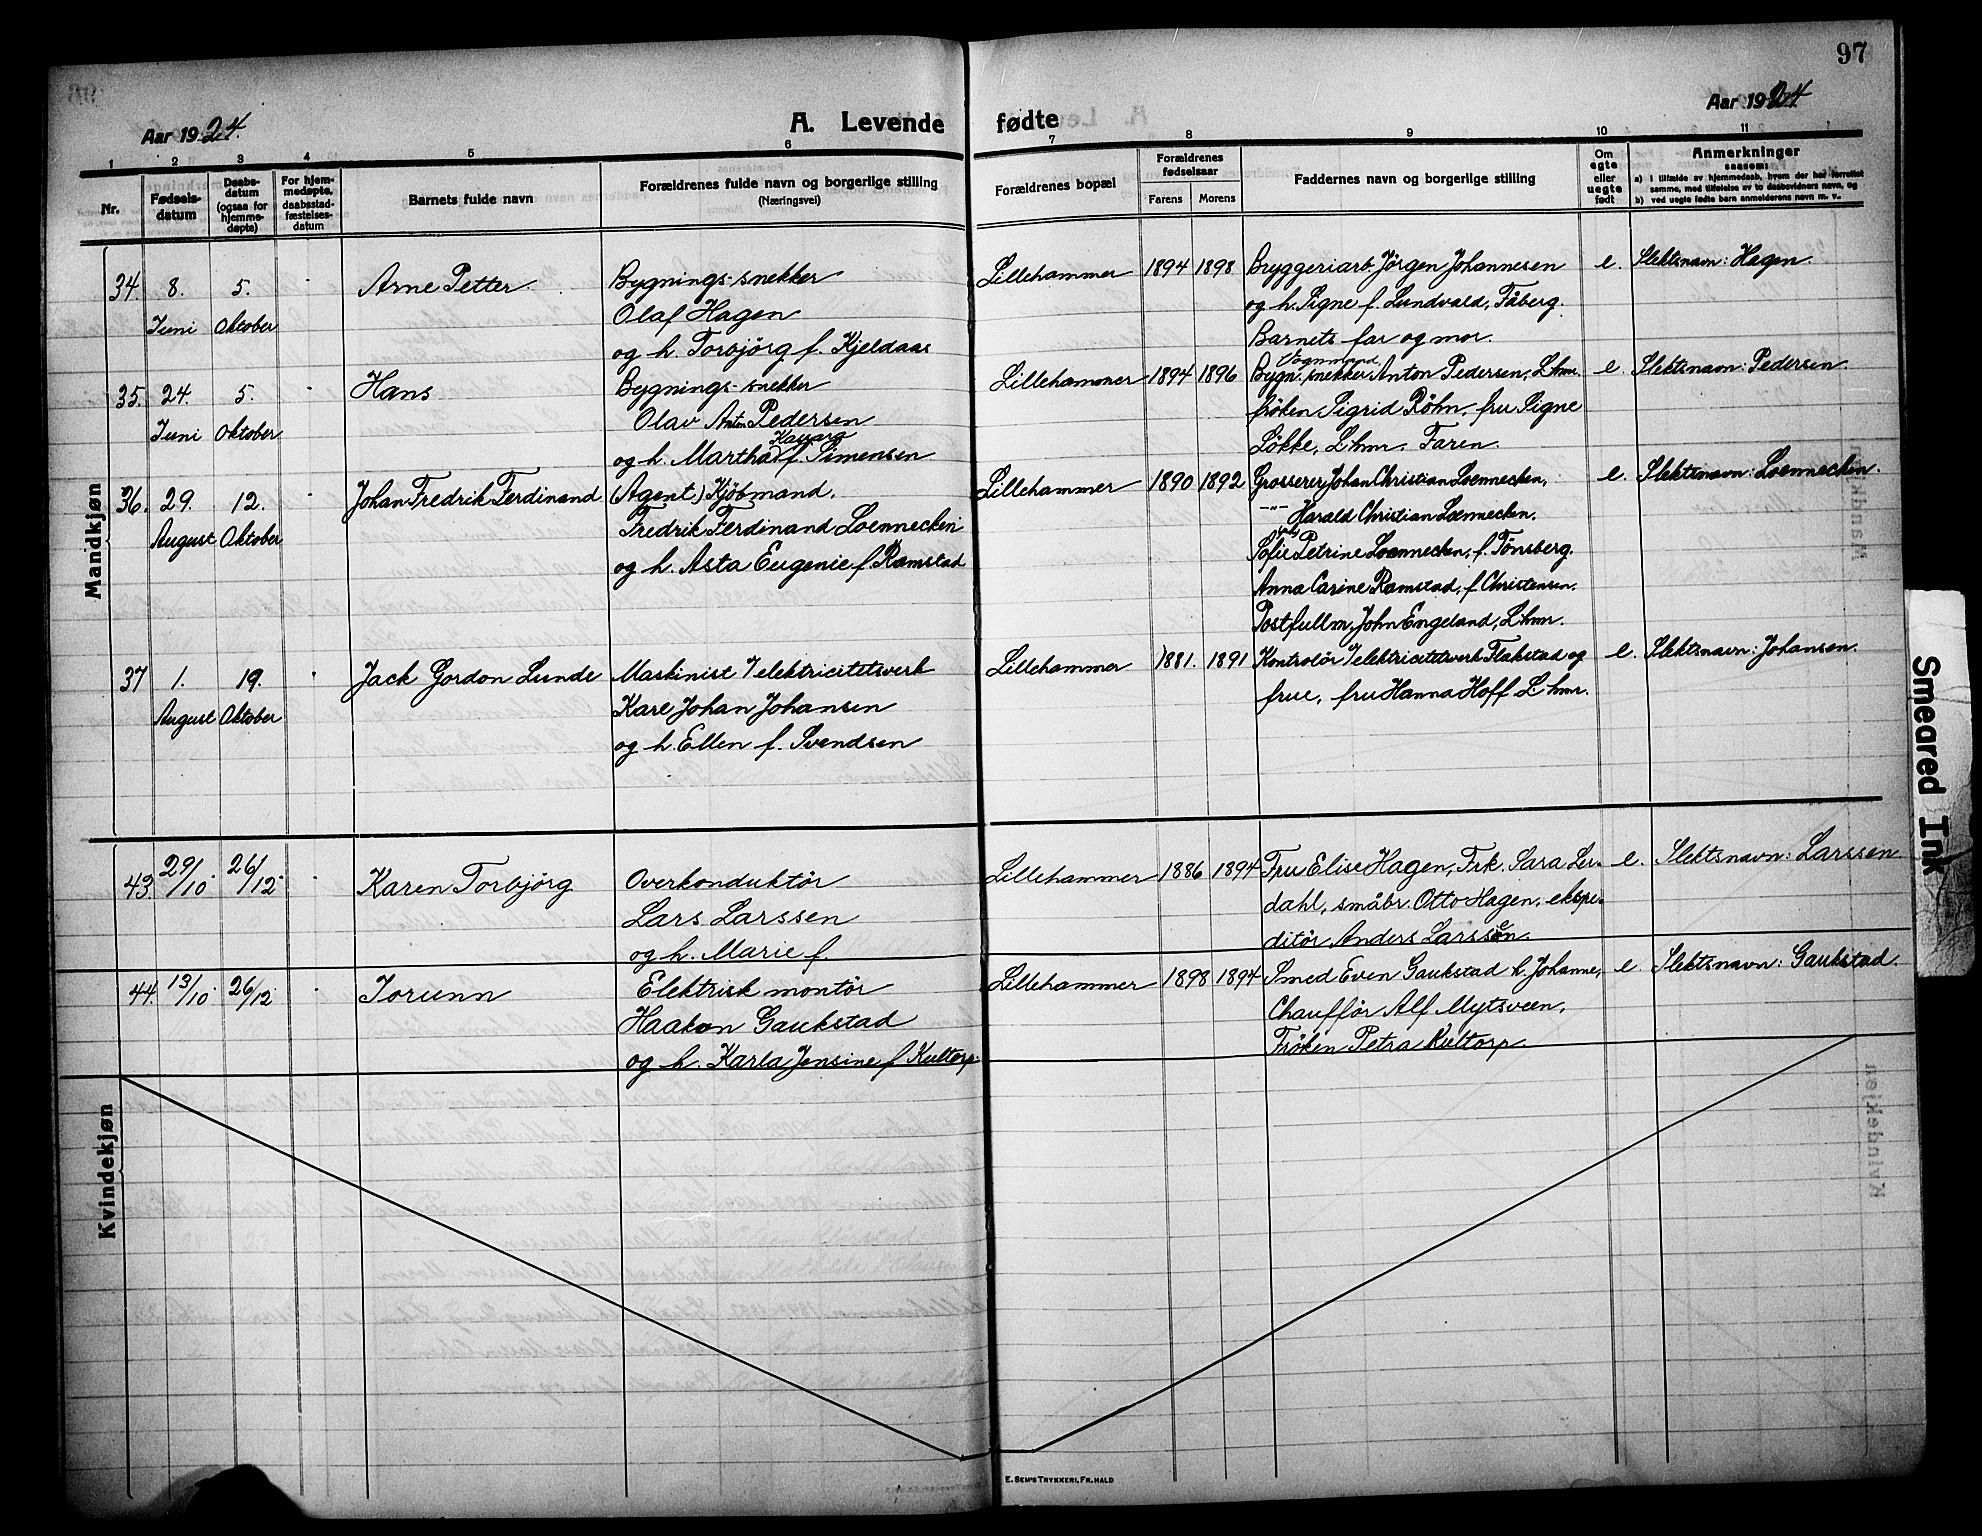 97
Aar 1924.
A. Levende fødte
Aar 1924
1 2 3 4 5 6 7 8 9 10 11
Nr.
Fødsels-
datum
Daabs-
datum
(ogsaa for
hjemme-
døpte)
For hjem-
medøpte,
daabsstad-
fæstelses-
datum
Barnets fulde navn
Forældrenes fulde navn og borgerlige stilling
(Næringsvei)
Forældrenes bopæl
Forældrenes
fødselsaar
Farens Morens
Faddernes navn og borgerlige stilling
Om
egte
eller
uegte
født
Anmerkninger
saasom:
a) i tilfælde av hjemmedaab, hvem der har forrettet
samme, med tilføielse av to daabsvidners navn, og
b) ved uegte fødte barn anmelderens navn m. v..
Mandkjøn
34 8. Juni 5. Oktober - Arne Petter
Bygnings-snekker
Olaf Hagen
og h. Torbjörg f. Kjeldaas
Lillehammer 1894 1898
Bryggeriarb. Jörgen Johannesen
og h. Signe f. Lundvald, Fåberg.
Barnets far og mor.
e. Slektsnavn: Hagen.
35. 24. Juni 5. Oktober - Hans
Bygnings-snekker
Olav Anton Pedersen
Kaspara
og h. Martha f. Simensen
Lillehammer 1894 1896
Vognmand
Bygn. snekker Anton Pedersen, L.hmr.
fröken Sigrid Röhn, fru Signe
Lökke, L.hmr. Faren.
e. Slektsnavn: Pedersen.
36. 29. August 12. Oktober - Johan Fredrik Ferdinand
(Agent) Kjöbmand.
Fredrik Ferdinand Loennecken
og h. Asta Eugenie f. Ramstad
Lillehammer 1890 1892
Grosserer Johan Christian Loennecken,
-"- Harald Christian Loennecken.
Sofie Petrine Loennecken, f. Tönsberg.
Anna Carine Ramstad, f. Christensen.
Postfullm. John Engeland, L.hmr.
e. Slektsnavn: Loennecken.
37 1. August 19. Oktober - Jack Gordon Lunde
Maskinist v/ elektricitetsverk
Karl Johan Johansen
og h. Ellen f. Svendsen
Lillehammer 1881. 1891
Kontrolör v/ elektricitetsverk Flakstad og
frue, fru Hanna Hoff L.hmr.
e. Slektsnavn: Johansen.
Kvindekjøn
43. 29/10 26/12 - Karen Torbjörg
Overkonduktör
Lars Larssen
og h. Marie f.
Lillehammer 1886 1894
Fru Elise Hagen, Frk. Sara Ler-
dahl, småbr. Otto Hagen, ekspe-
ditör Anders Larssen.
e. Slektsnavn: Larssen
44. 13/10 26/12 - Jorunn
Elektrisk montör
Haakon Gaukstad
og h. Karla Jensine f. Kultorp.
Lillehammer 1898 1894
Smed Even Gaukstad h. Johanne,
Chaufför Alf Mytsveen,
Fröken Petra Kultorp.
e Slektsnavn: Gaukstad.
E. Sem's Trykkeri, Fr.hald
Smeared Ink